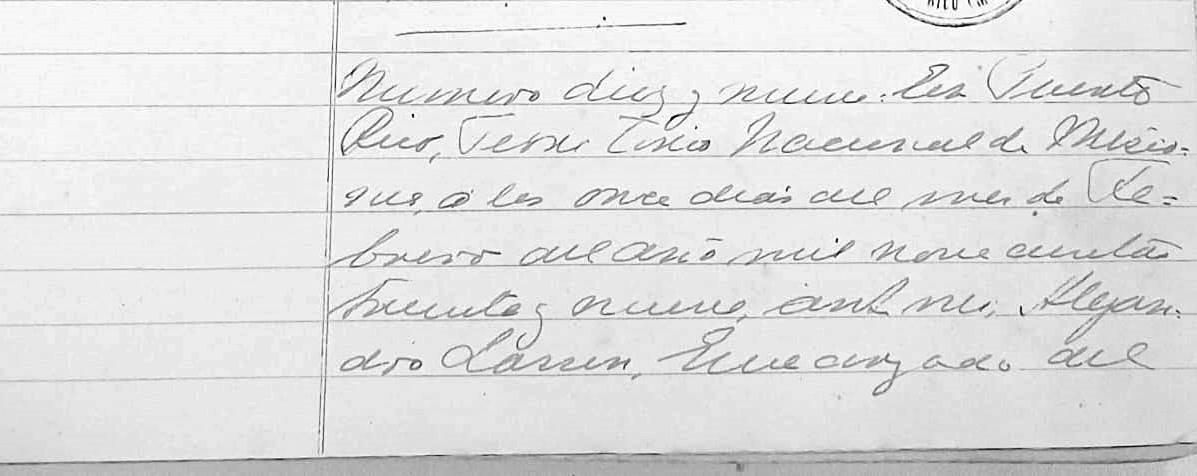 RICO (M
Numero diez y nueve: En Puerto
Rico, Territorio Nacional de Misio-
nes, a los once dias del mes de Fe=
brero del año mil novecientos
treinta y nueve, ante mi, Alejan-
dro Larsen, Encargado del